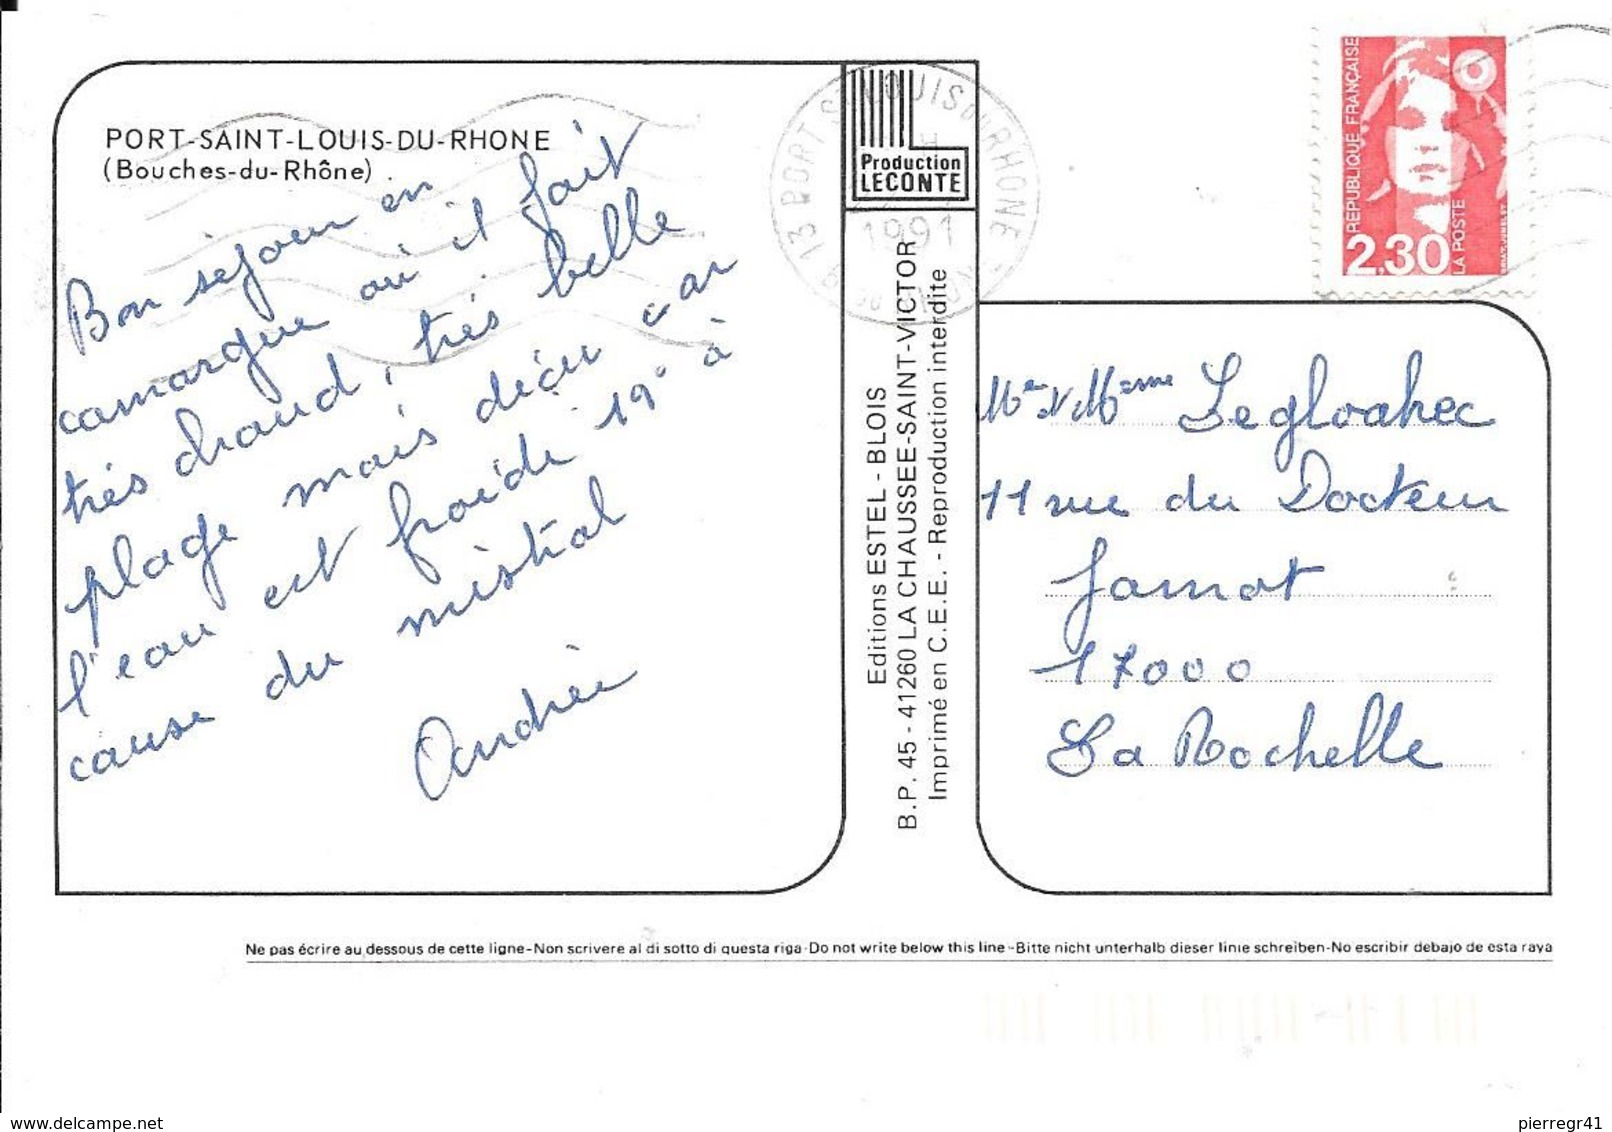 PORT-SAINT-LOUIS-DU-RHONE
(Bouches-du-Rhône)
Bon séjour en
camargue où il fait
très chaud, très belle
plage mais déçu car
l'eau est froide 19° à
cause du mistral
Andrée
Production
LECONTE
13 PORT ST LOUIS DU RHONE
1991
Editions ESTEL - BLOIS
B.P. 45 - 41260 LA CHAUSSEE-SAINT-VICTOR
Imprimé en C.E.E. - Reproduction interdite
REPUBLIQUE FRANÇAISE
2,30
LA POSTE
Mr & Mme Legloahec
11 rue du Docteur
Jamot
17000
La Rochelle
Ne pas écrire au dessous de cette ligne-Non scrivere al di sotto di questa riga-Do not write below this line-Bitte nicht unterhalb dieser linie schreiben-No escribir debajo de esta raya
www.delcampe.net
pierregr41